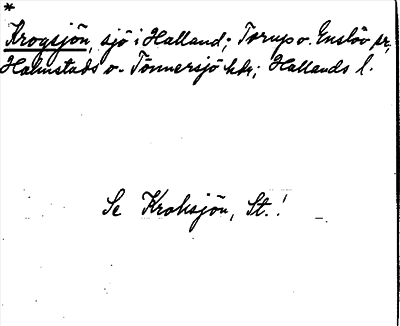 *
Krogsjön, sjö i Halland; Torup o. Enslöv sr,
Halmstads o. Tönnersjö hdr; Hallands l.
Se Kroksjön, St.!